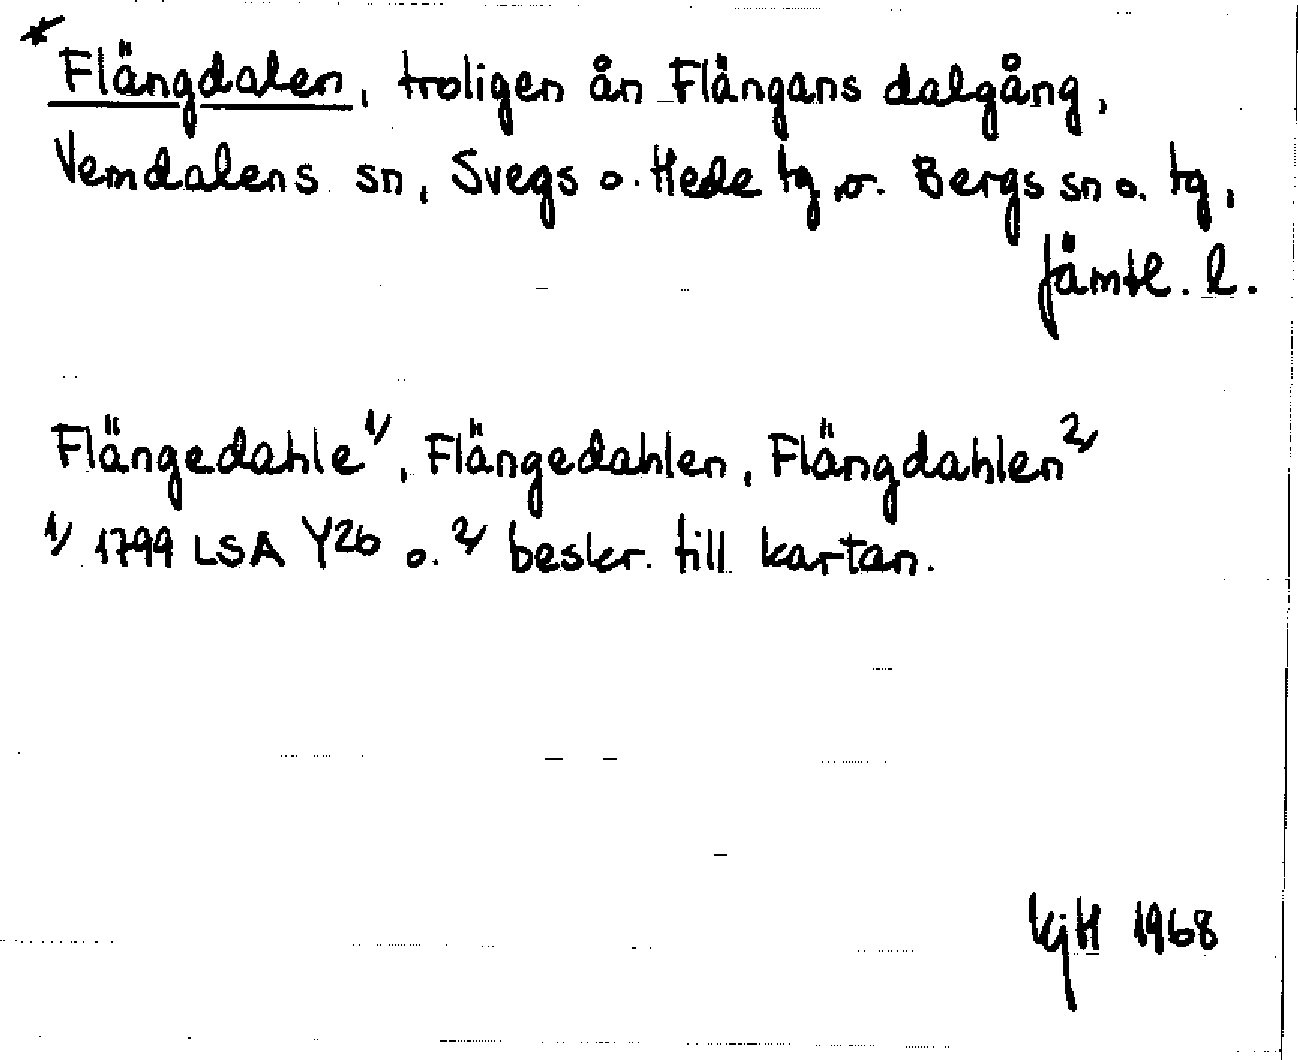 * Flängdalen, troligen ån Flängans dalgång,
Vemdalens sn, Svegs o. Hede tg o. Bergs sn o. tg,
Jämtl. l.
Flängedahle 1/, Flängedahlen, Flängdahlen 2/
1/ 1799 LSA Y26 o. 2/ beskr. till kartan.
KjH 1968